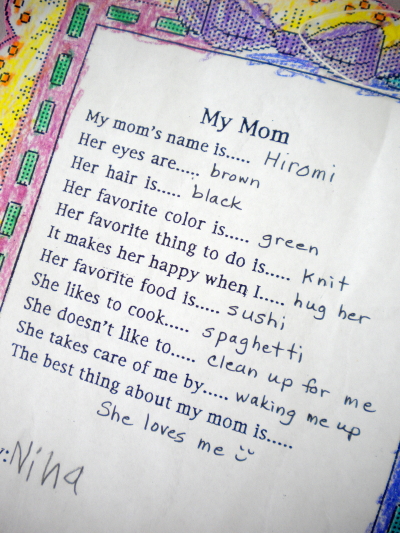 My Mom
My mom's name is..... Hiromi
Her eyes are..... brown
Her hair is..... black
Her favorite color is..... green
Her favorite thing to do is..... knit
It makes her happy when I..... hug her
Her favorite food is..... sushi
She likes to cook..... spaghetti
She doesn't like to..... clean up for me
She takes care of me by..... waking me up
The best thing about my mom is.....
She loves me
y: Nina